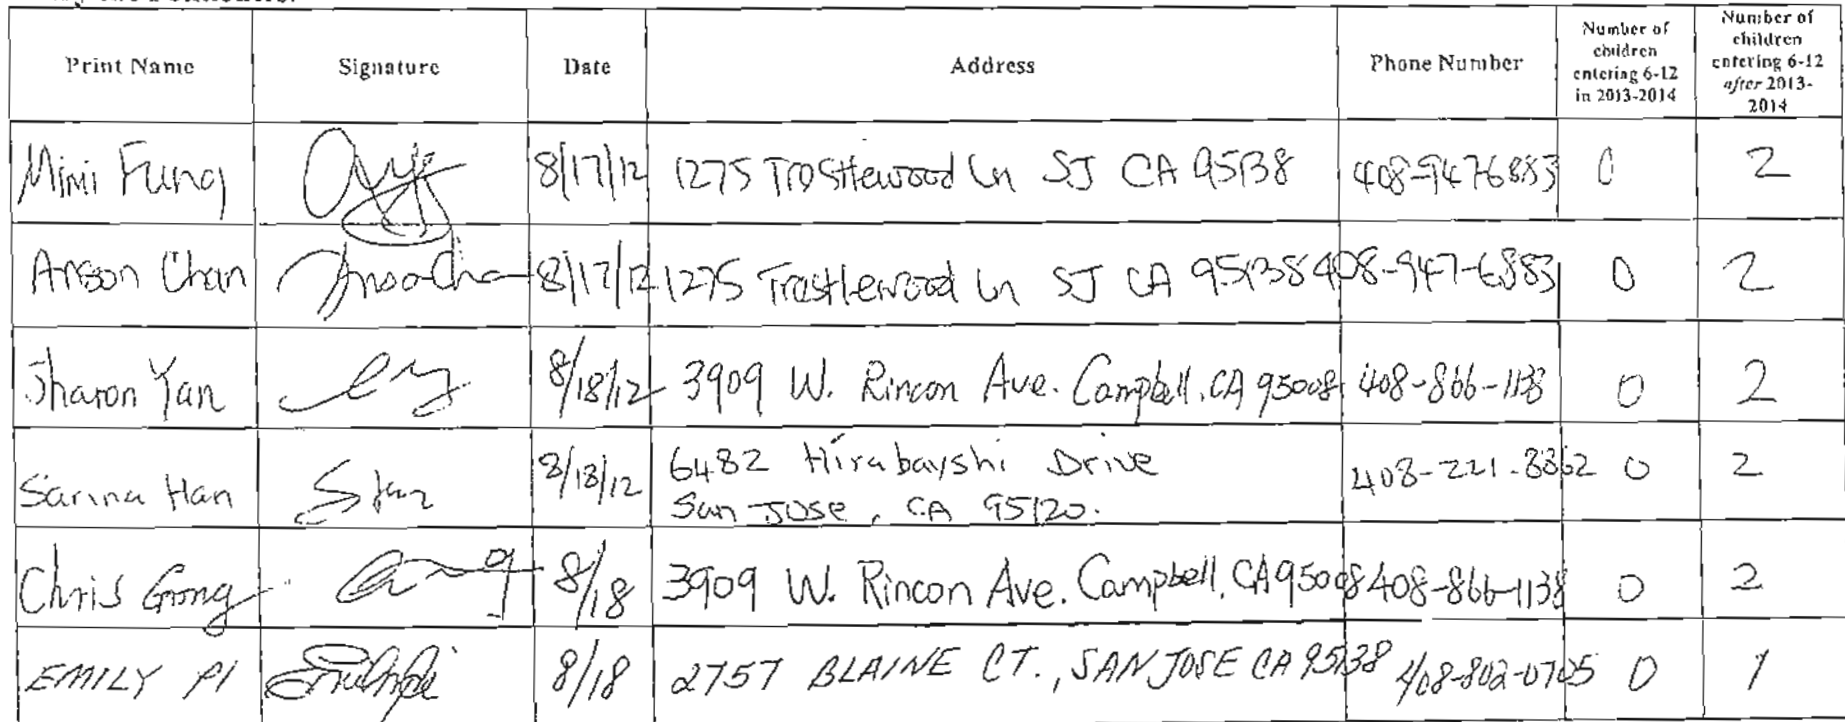 Print Name Signature Date Address Phone Number Number of children entering 6-12 in 2013-2014 Number of children entering 6-12 after 2013-2014
Mimi Fung 8/17/12 1275 Trestlewood Ln SJ CA 95138 408-947-6883 0 2
Anson Chan 8/17/12 1275 Trestlewood Ln SJ CA 95138 408-947-6883 0 2
Sharon Yan 8/18/12 3909 W. Rincon Ave. Campbell, CA 95008 408-866-1138 0 2
Sarina Han 8/18/12 6482 Hirabayshi Drive
San Jose, CA 95120. 408-221-8862 0 2
Chris Gong 8/18 3909 W. Rincon Ave. Campbell, CA 95008 408-866-1138 0 2
EMILY PI 8/18 2757 BLAINE CT., SAN JOSE CA 95138 408-802-0705 0 1